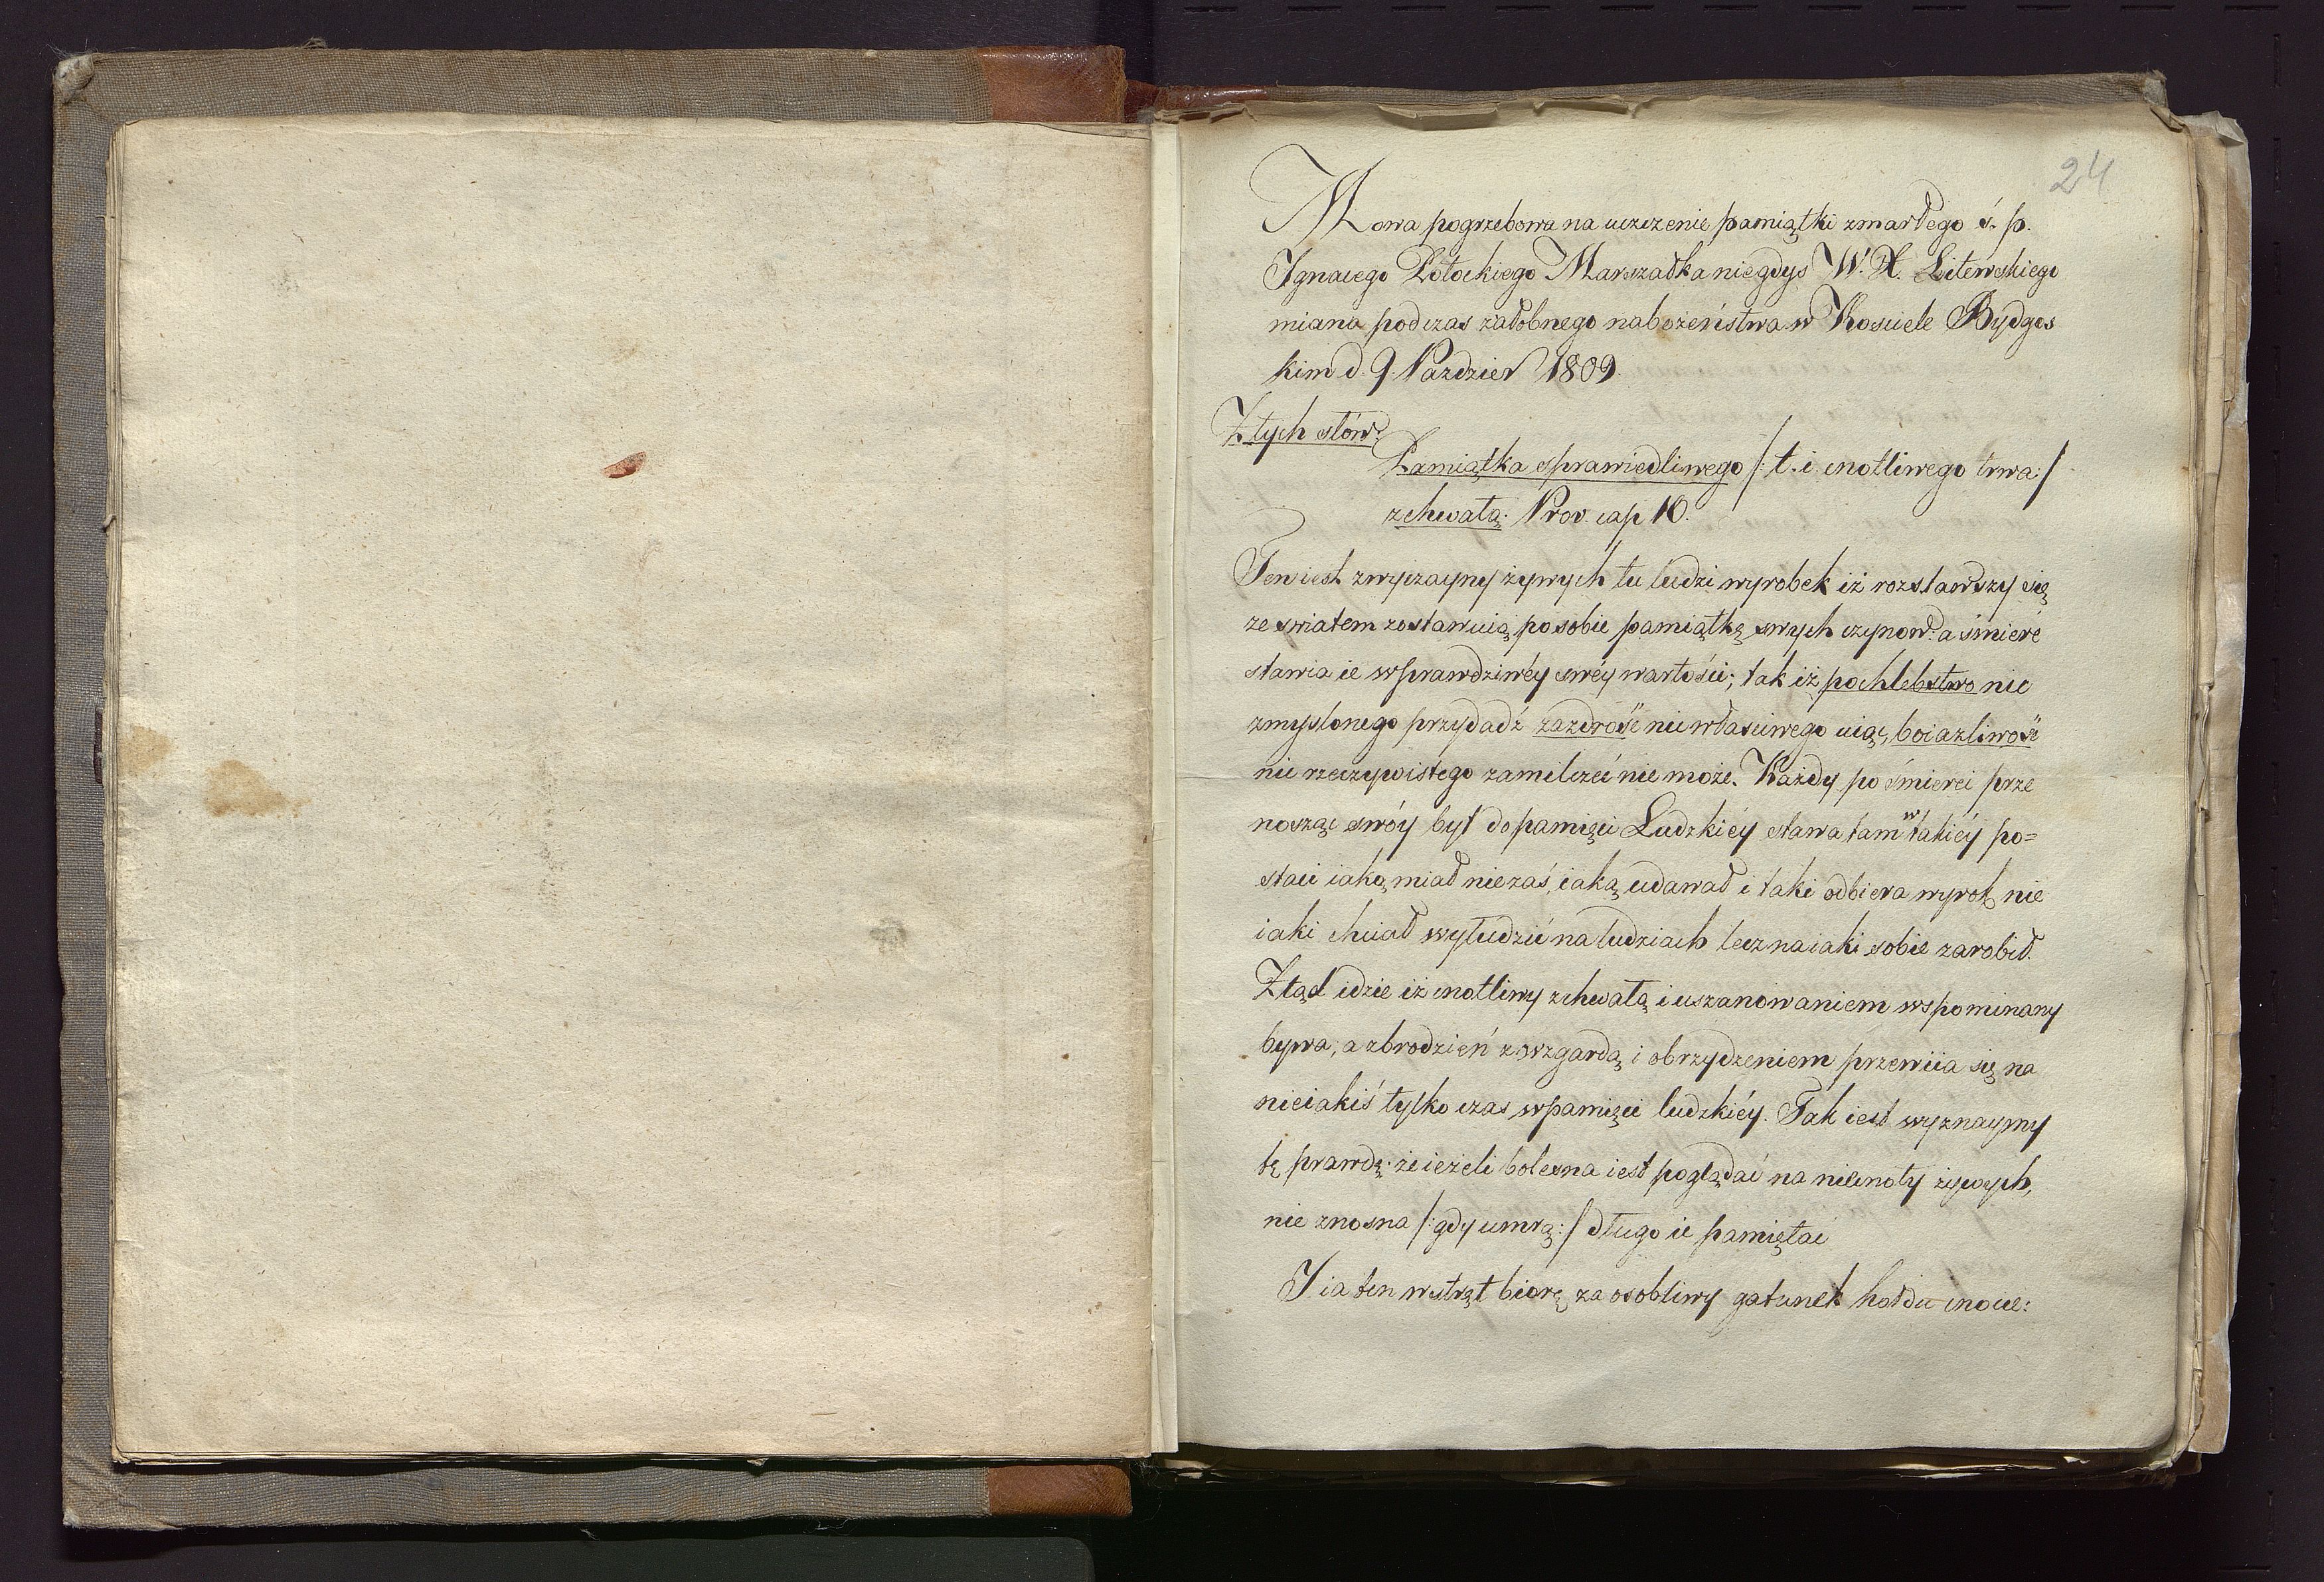 24
Mowa pogrzebowa na uczczenie pamiątki zmarłego ś. p.
Ignacego Potockiego Marszałka niegdys W. X. Litewskiego
miana podczas żałobnego nabożeństwa w Kosciele Bydgos
kim d. 9. Pazdzier 1809.
Z tych słów:
Pamiątka sprawiedliwego /: t. i. cnotliwego trwa :/
z chwałą. Prov. cap 10.
Ten iest zwyczayny żywych tu ludzi wyrobek iż rozstawszy się
ze swiatem zostawuią po sobie pamiątkę swych czynow: a śmierć
stawia ie w prawdziwéy swéy wartości; tak iż pochlebstwo nic
zmyslonego przydadź zazdrość nic właściwego uiąć, boiazliwość
nic rzeczywistego zamilczeć nie może. Każdy po śmierci prze
nosząc swóy byt do pamięci Ludzkiéy stawa tam w takiéy po=
staci iaką miał nie zaś iaką udawał i taki odbiera wyrok nie
iaki chciał wyłudzić na ludziach lecz na iaki sobie zarobił.
Ztąd idzie iż cnotliwy z chwałą i uszanowaniem wspominany
bywa; a zbrodzień z wzgardą i obrzydzeniem przewiia się na
nieiakiś tylko czas w pamięci ludzkiéy. Tak iest wyznaymy
tę prawdę: że ieżeli bolesna iest poglądać na niecnoty żywych,
nie znosna /: gdy umrą :/ długo ie pamiętać
I ia ten wstręt biorę za osobliwy gatunek hołdu cnocie: